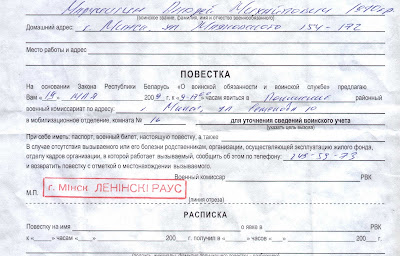 Андрей Михайлович
(воинское звание, фамилия, имя и отчество военнообязанного)
Домашний адрес г. Минск, ул. Маяковского 154-172
Место работы и адрес
ПОВЕСТКА
На основании Закона Республики Беларусь «О воинской обязанности и воинской службе» предлагаю
Вам «19» мая 2009 г. к 9-17 00 часам явиться в Ленинский районный
военный комиссариат по адресу: г. Минск, ул.
в мобилизационное отделение, комната № 16 для уточнения сведений воинского учета
(указать причину)
При себе иметь: паспорт, военный билет, настоящую повестку, а также
В случае отсутствия вызываемого или его болезни родственникам, организации, осуществляющей эксплуатацию жилого фонда,
отделу кадров организации, в которой работает вызываемый, сообщить об этом по телефону:
и возвратить повестку с отметкой о местонахождении вызываемого.
Военный комиссар РВК
М.П. г. МІНСК ЛЕНІНСКІ РАУС
(линия отреза)
РАСПИСКА
Повестку на имя о явке в РВК
к « » часам « » 200 г. получил в « » часов « » 200 г.